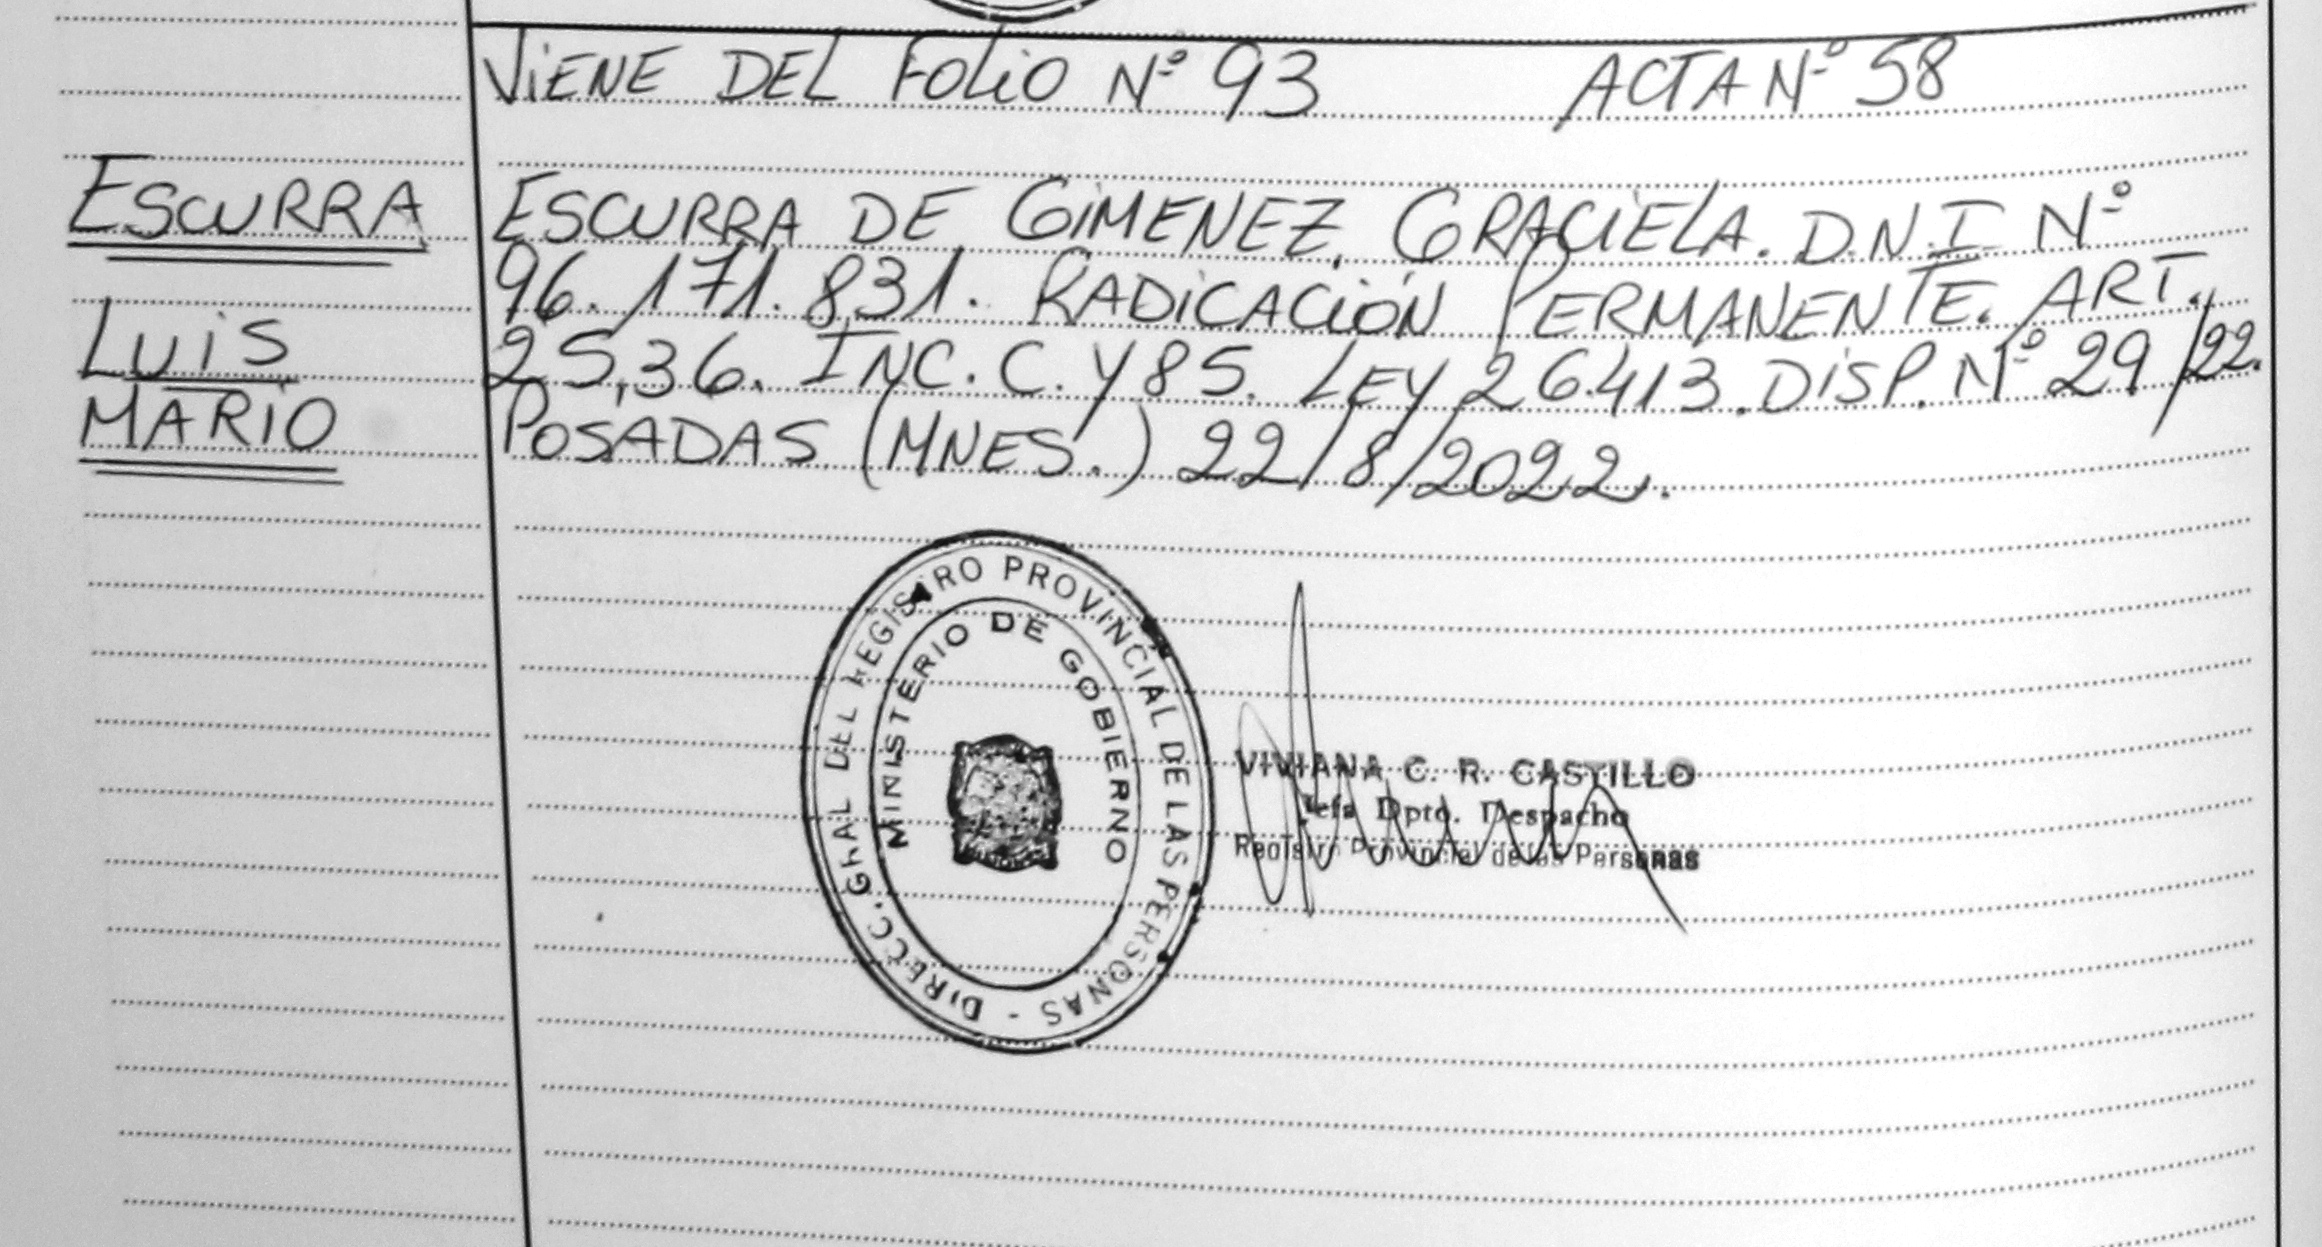 VIENE DEL FOLIO Nº 93 ACTA Nº 58
ESCURRA
LUIS
MARIO
ESCURRA DE GIMENEZ, GRACIELA. D.N.I. Nº
96.171.831. RADICACIÓN PERMANENTE. ART.
25,36. INC. C. Y 85. LEY 26.413. DISP. Nº 29/22.
POSADAS (MNES.) 22/8/2022.
DIRECC. GRAL DEL REGISTRO PROVINCIAL DE LAS PERSONAS -
MINISTERIO DE GOBIERNO
VIVIANA C. R. CASTILLO
Jefa Dpto. Despacho
Registro Provincial de las Personas